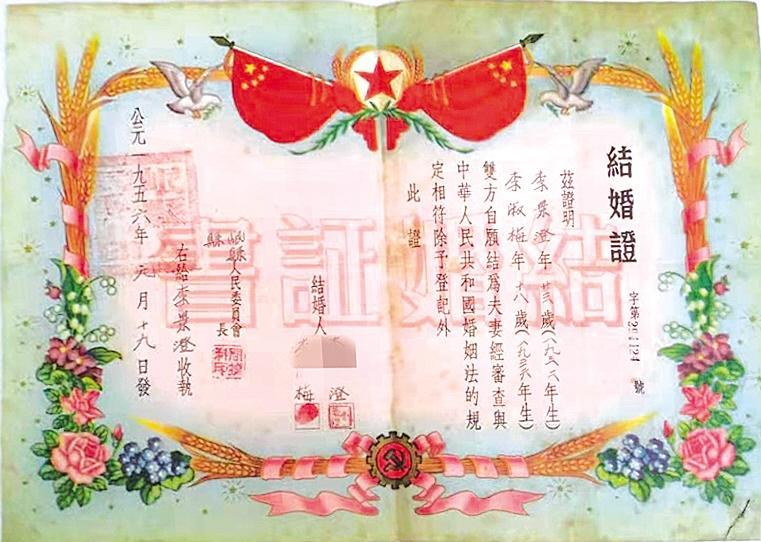 結婚證
字第291124號
茲證明
李景澄年廿三歲(一九三三年生)
李淑梅年十八歲(一九三八年生)
雙方自願結爲夫妻經審查與
中華人民共和國婚姻法的規
定相符除予登記外
此證
結婚人
澄
梅
縣人民委員會
縣長
右給李景澄收執
公元一九五六年 月十九日發
結婚証書